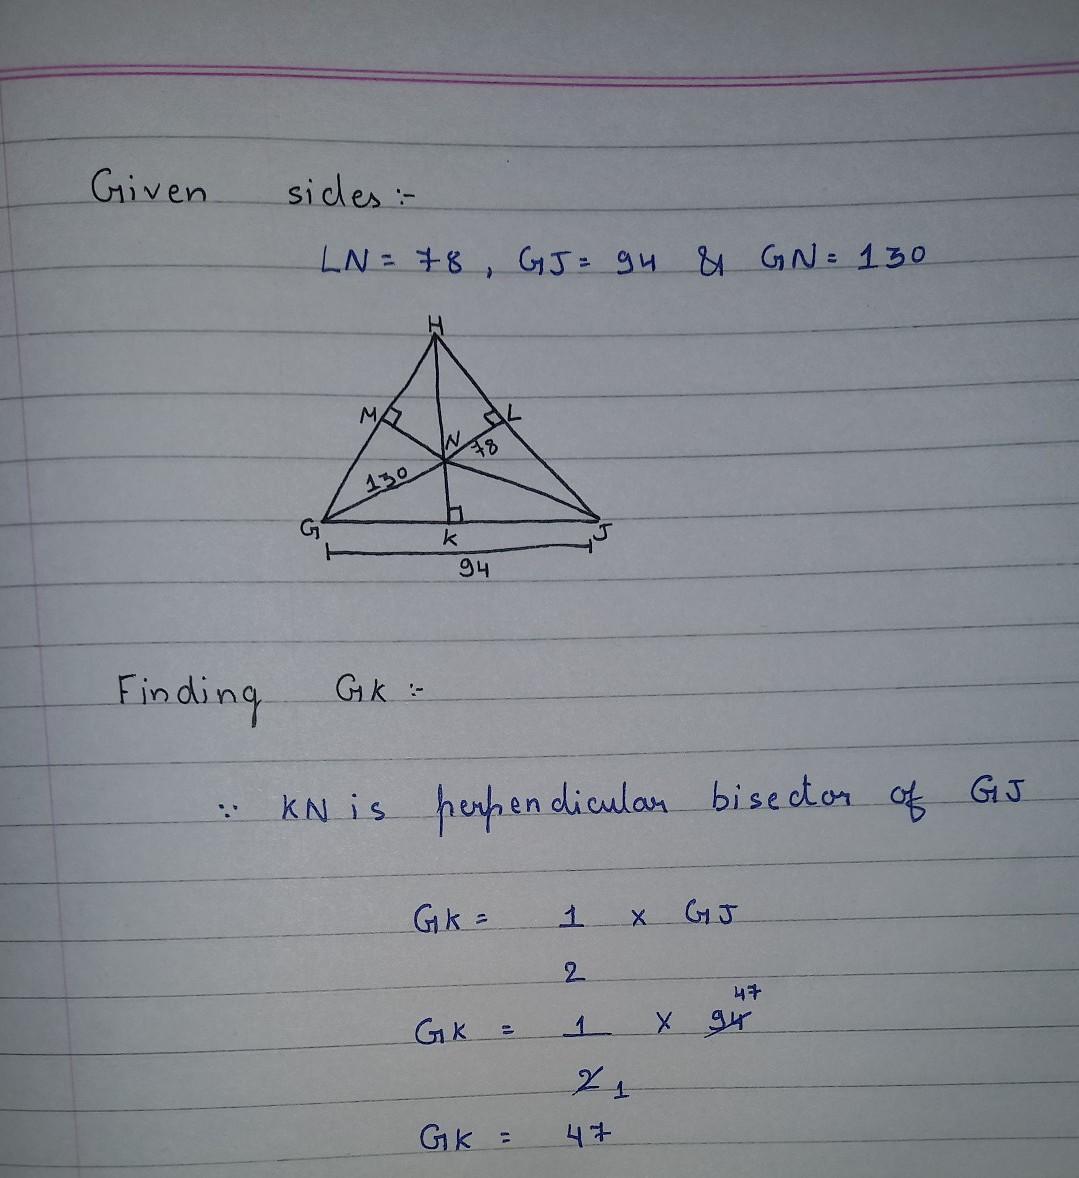 Given sides :-
LN = 78 , GJ = 94 & GN = 130
H
M L
N 78
130
G K J
94
Finding GK :-
∵ KN is perpendicular bisector of GJ
GK = 1 x GJ
2
47
GK = 1 x 94
2 1
GK = 47